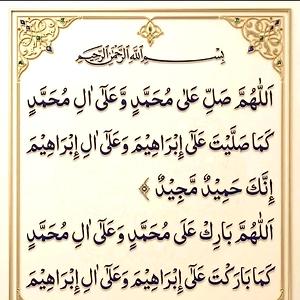 بِسْمِ اللهِ الرَّحْمٰنِ الرَّحِيْمِ
اَللّٰهُمَّ صَلِّ عَلٰى مُحَمَّدٍ وَّعَلٰٓى اٰلِ مُحَمَّدٍ
كَمَا صَلَّيْتَ عَلٰٓى اِبْرَاهِيْمَ وَعَلٰٓى اٰلِ اِبْرَاهِيْمَ
اِنَّكَ حَمِيْدٌ مَّجِيْدٌ
اَللّٰهُمَّ بَارِكْ عَلٰى مُحَمَّدٍ وَعَلٰٓى اٰلِ مُحَمَّدٍ
كَمَا بَارَكْتَ عَلٰٓى اِبْرَاهِيْمَ وَعَلٰٓى اٰلِ اِبْرَاهِيْمَ